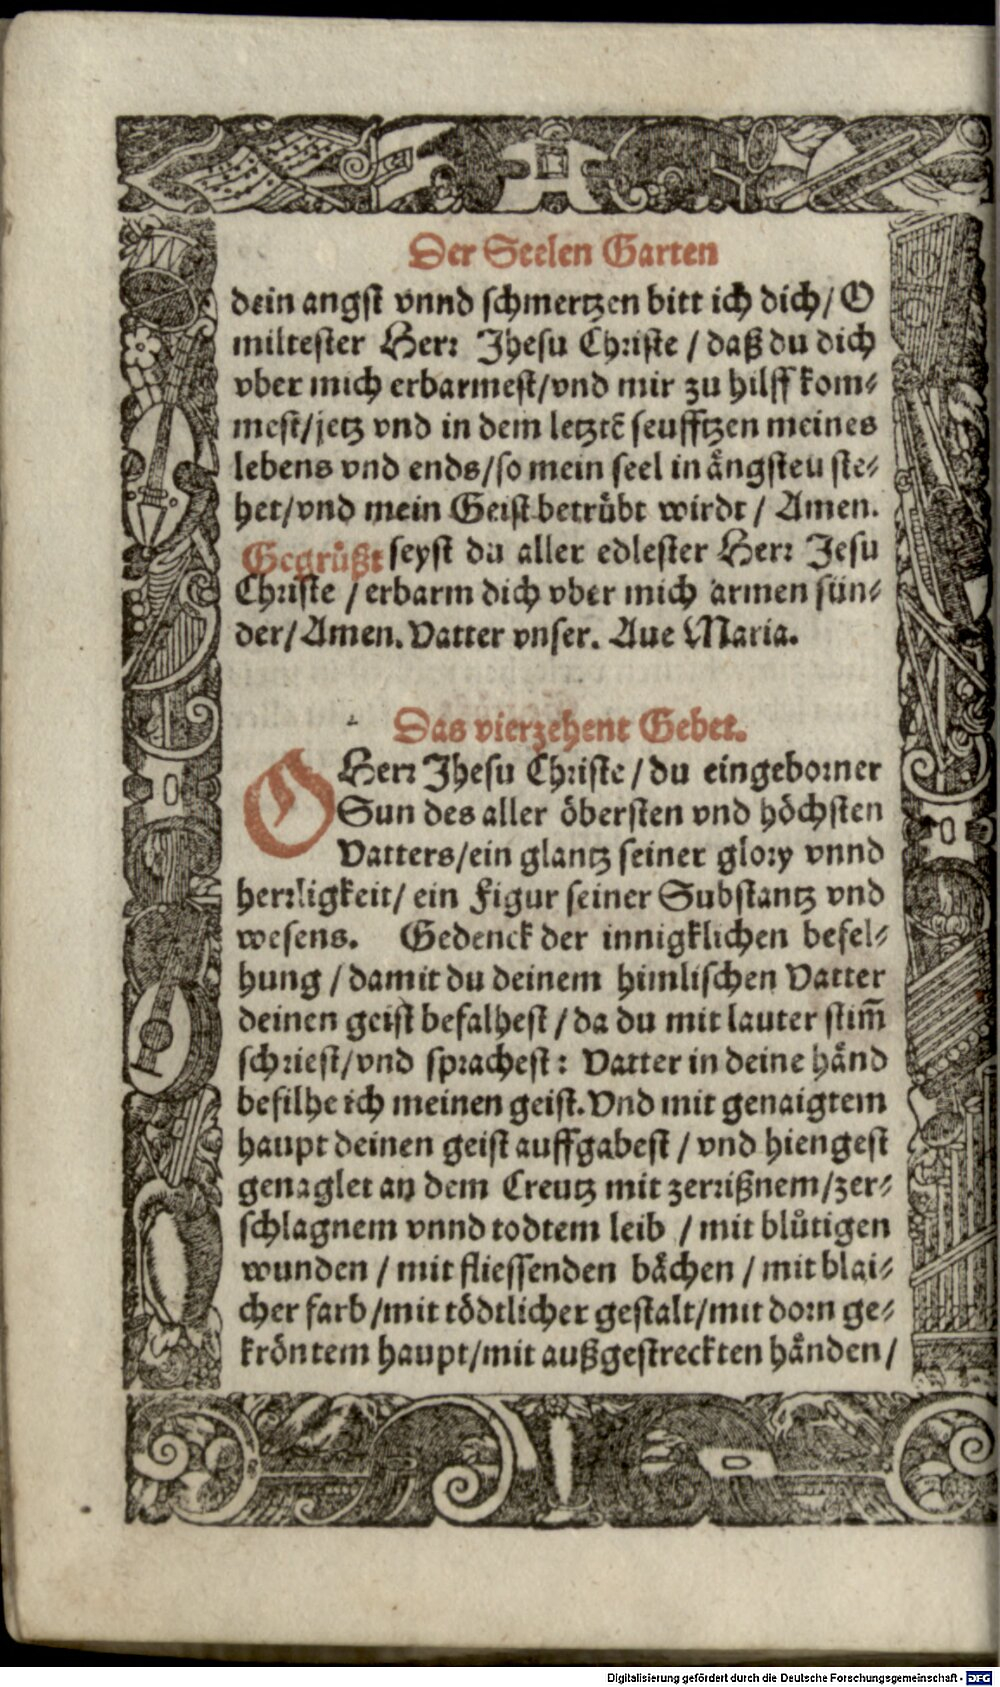 Der Seelen Garten
dein angst vnnd schmertzen bitt ich dich/ O
miltester Herr Jhesu Christe / daß du dich
vber mich erbarmest/vnd mir zu hilff kom⸗
mest/jetz vnd in dem letztẽ seufftzen meines
lebens vnd ends/so mein seel in ängsteu ste⸗
het/vnd mein Geist betrübt wirdt / Amen.
Gegrüßt seyst du aller edlester Herr Jesu
Christe / erbarm dich vber mich armen sün⸗
der/Amen. Vatter vnser. Aue Maria.
Das vierzehent Gebet.
O Herr Jhesu Christe / du eingeborner
Sun des aller öbersten vnd höchsten
Vatters/ein glantz seiner glory vnnd
herrligkeit/ ein Figur seiner Substantz vnd
wesens. Gedenck der innigklichen befel⸗
hung / damit du deinem himlischen Vatter
deinen geist befalhest / da du mit lauter stim̃
schriest/vnd sprachest: Vatter in deine händ
befilhe ich meinen geist. Vnd mit genaigtem
haupt deinen geist auffgabest / vnd hiengest
genaglet an dem Creutz mit zerrißnem/zer⸗
schlagnem vnnd todtem leib / mit blůtigen
wunden / mit fliessenden bächen / mit blai⸗
cher farb/mit tödtlicher gestalt/mit dorn ge⸗
kröntem haupt/mit außgestreckten händen/
Digitalisierung gefördert durch die Deutsche Forschungsgemeinschaft - DFG